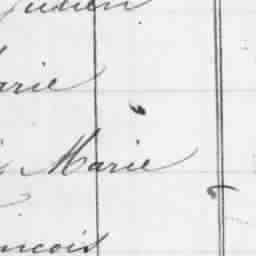 Julien
arie
Marie
ncois